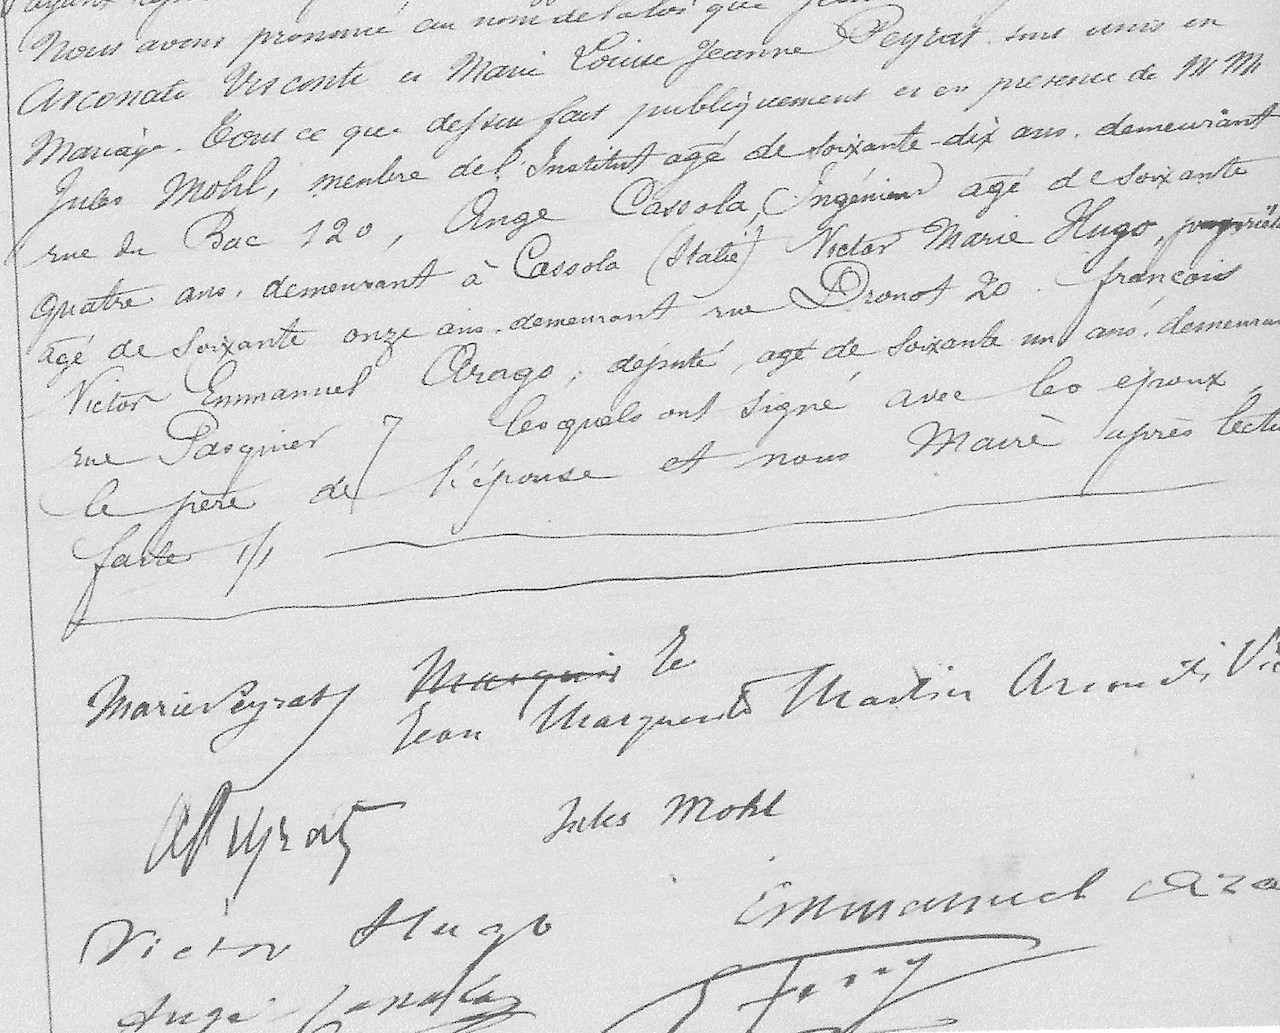 Nous avons prononcé au nom de la loi que
Arconati Visconti et Marie Louise Jeanne Peyrat sont unis en
Mariage. Tout ce que dessus fait publiquement et en présence de M M
Jules Mohl, membre de l'Institut agé de soixante-dix ans. demeurant
rue du Bac 120, Ange Cassola, Ingénieur agé de soixante
quatre ans. demeurant à Cassola (Italie) Victor Marie Hugo,
agé de soixante onze ans. demeurant rue Drouot 20. françois
Victor Emmanuel Arago, député, agé de soixante un ans. demeurant
rue Pasquier 7 lesquels ont signé avec les époux
le père de l'épouse et nous Maire après lectu
faite ./.
Marie Peyrat Marquis Je
Jean Martin Arconati Vi
A Peyrat Jules Mohl
Victor Hugo Emmanuel Ara
Ange Cassola